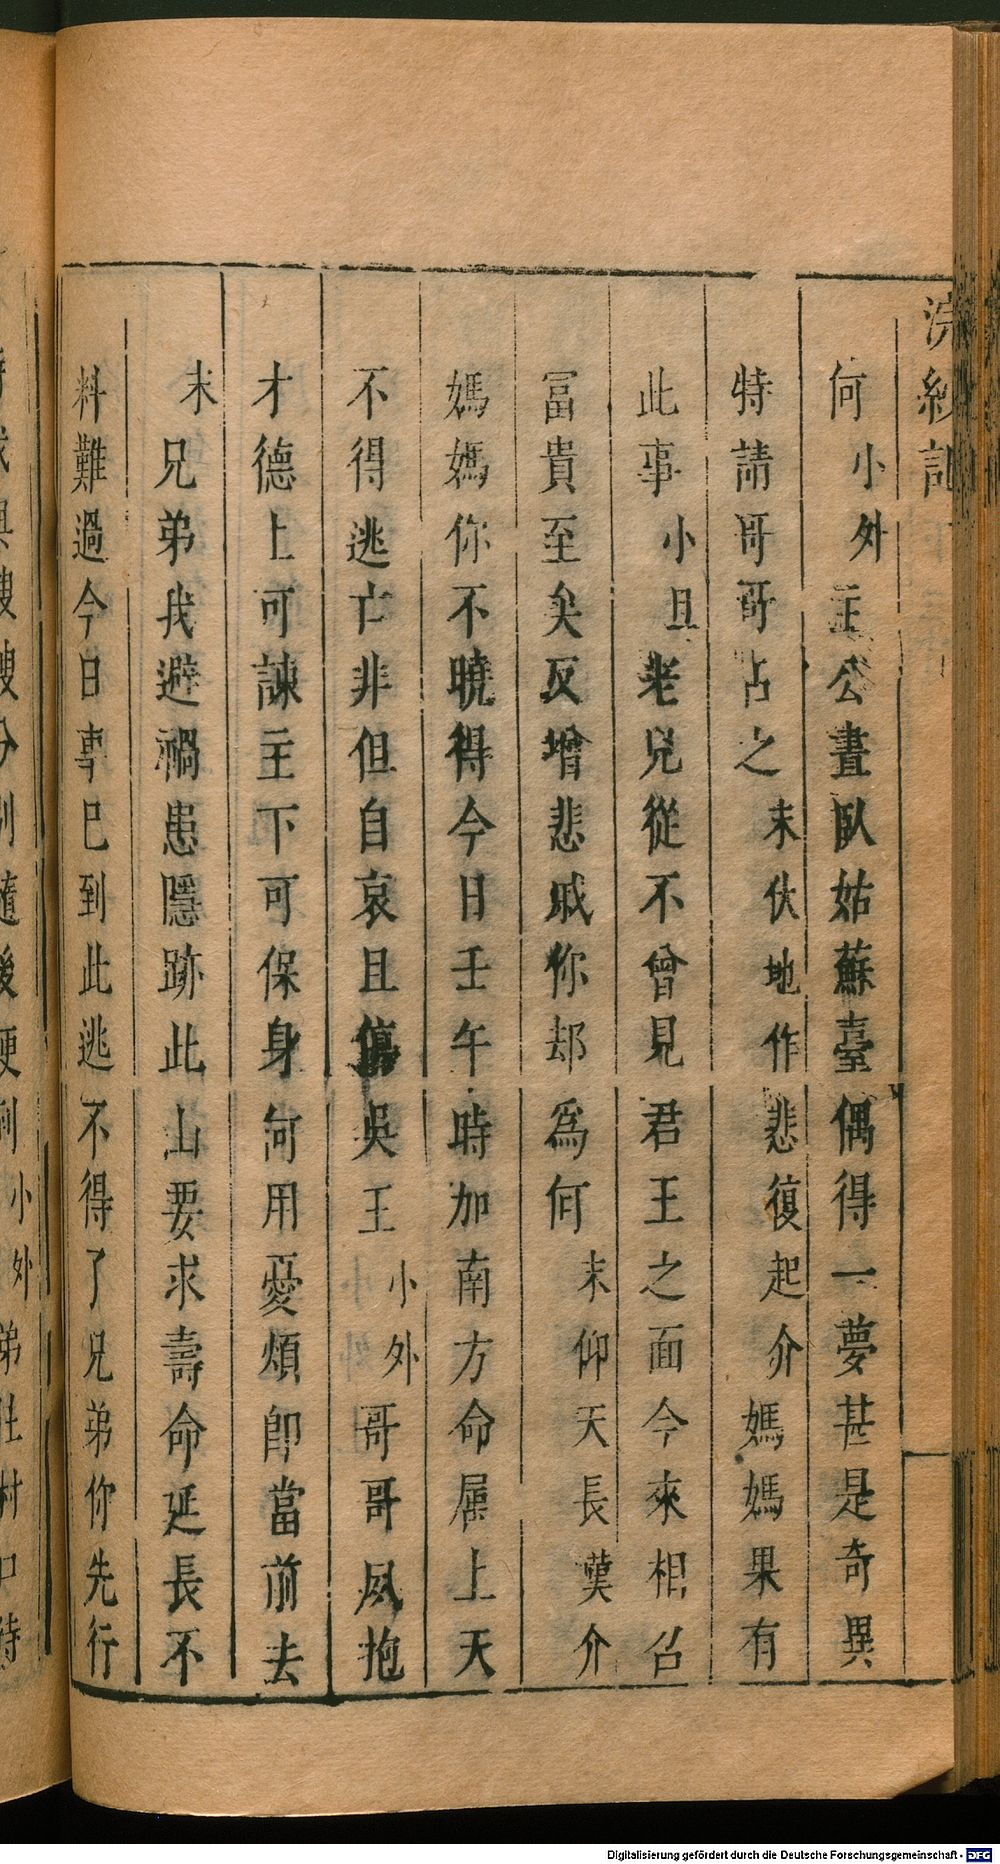 浣紗記
何小外主公晝臥姑蘇臺偶得一夢甚是奇異
特請哥哥占之末伏地作悲復起介媽媽果有
此事小旦老兒從不曾見君王之面今來相召
冨貴至矣反增悲戚你却爲何末仰天長嘆介
媽媽你不曉得今日壬午時加南方命属上天
不得逃亡非但自哀且傷吳王小外哥哥夙抱
才德上可諫主下可保身何用憂煩卽當前去
末兄弟我避禍患隱跡此山要求壽命延長不
料難過今日事巳到此逃不得了兄弟你先行
嫂嫂分別隨後便到小外弟在村口待
Digitalisierung gefördert durch die Deutsche Forschungsgemeinschaft - DFG